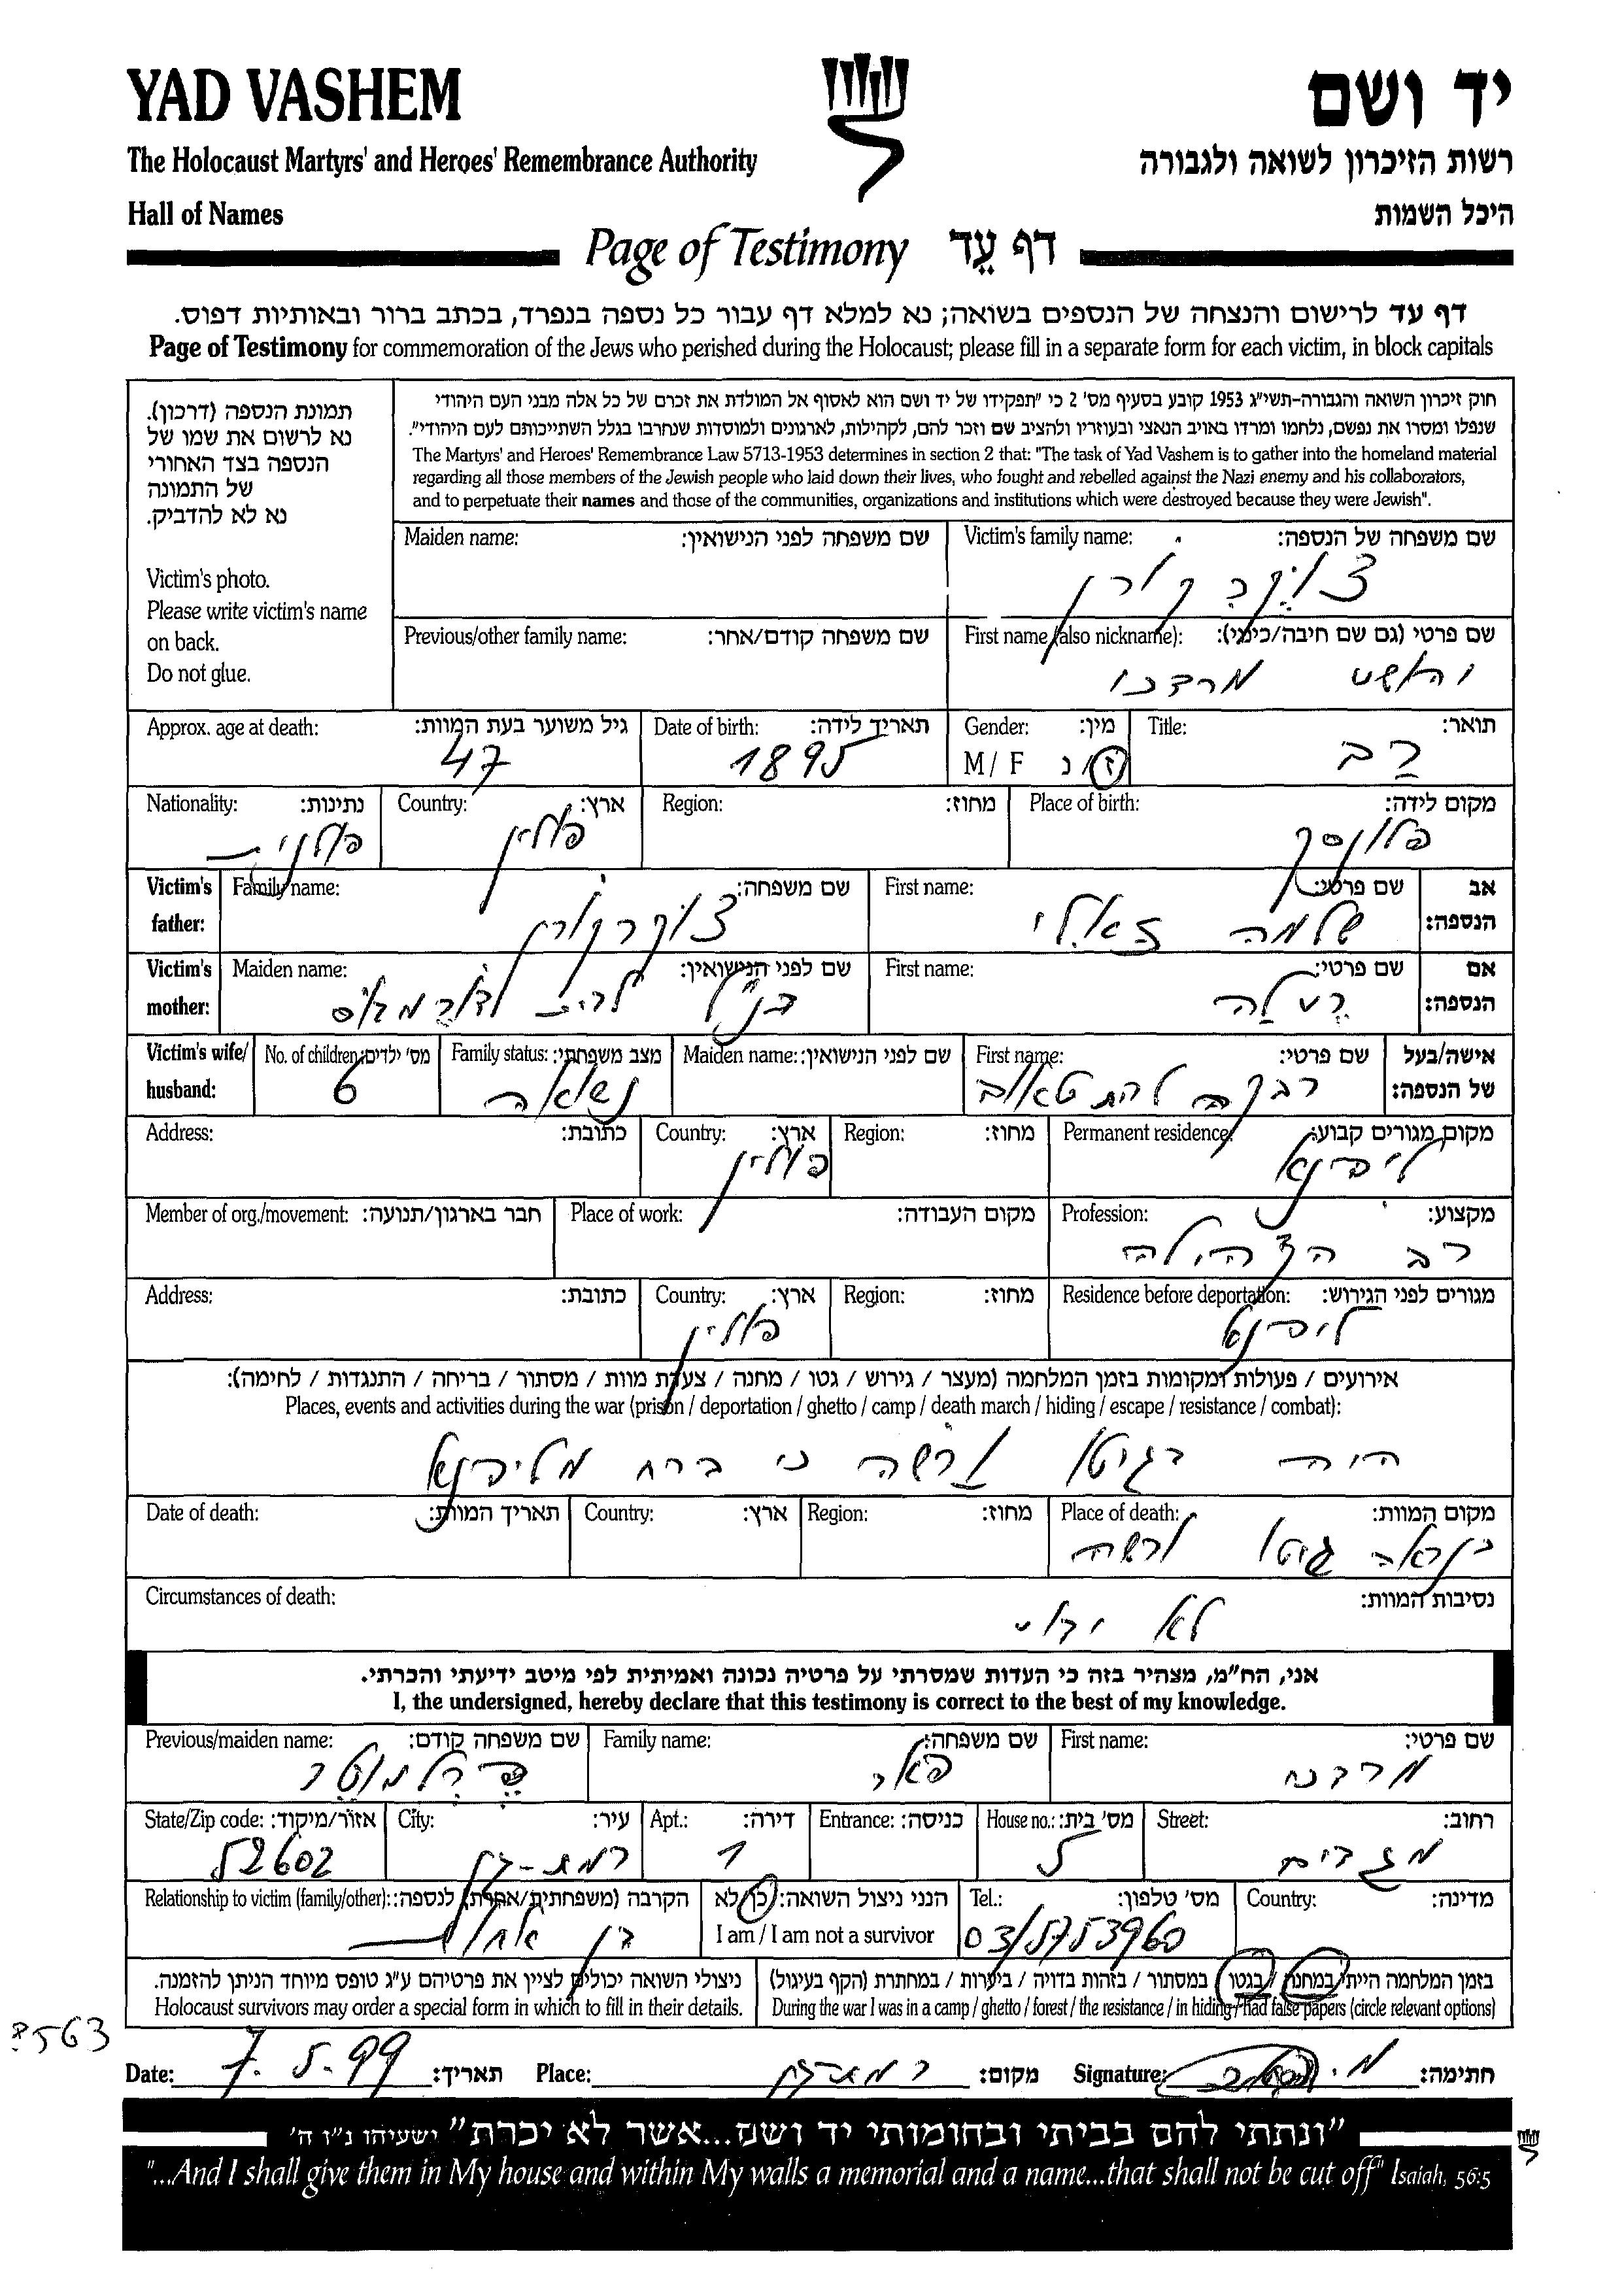 YAD VASHEM
יד ושם
The Holocaust Martyrs' and Heroes' Remembrance Authority
רשות הזיכרון לשואה ולגבורה
Hall of Names
היכל השמות
Page of Testimony דף עֵד
דף עד לרישום והנצחה של הנספים בשואה; נא למלא דף עבור כל נספה בנפרד, בכתב ברור ובאותיות דפוס.
Page of Testimony for commemoration of the Jews who perished during the Holocaust; please fill in a separate form for each victim, in block capitals
תמונת הנספה (דרכון).
נא לרשום את שמו של
הנספה בצד האחורי
של התמונה
נא לא להדביק.
Victim's photo.
Please write victim's name
on back.
Do not glue.
חוק זיכרון השואה והגבורה-תשי"ג 1953 קובע בסעיף מס' 2 כי "תפקידו של יד ושם הוא לאסוף אל המולדת את זכרם של כל אלה מבני העם היהודי
שנפלו ומסרו את נפשם, נלחמו ומרדו באויב הנאצי ובעוזריו ולהציב שם וזכר להם, לקהילות, לארגונים ולמוסדות שנחרבו בגלל השתייכותם לעם היהודי".
The Martyrs' and Heroes' Remembrance Law 5713-1953 determines in section 2 that: "The task of Yad Vashem is to gather into the homeland material
regarding all those members of the Jewish people who laid down their lives, who fought and rebelled against the Nazi enemy and his collaborators,
and to perpetuate their names and those of the communities, organizations and institutions which were destroyed because they were Jewish".
Maiden name: שם משפחה לפני הנישואין: Victim's family name: שם משפחה של הנספה:
צוקרקורן
Previous/other family name: שם משפחה קודם/אחר: First name (also nickname): שם פרטי (גם שם חיבה/כינוי):
מרדכי
Approx. age at death: גיל משוער בעת המוות: Date of birth: תאריך לידה: Gender: מין: Title: תואר:
47 1895 M / F ז / נ רב
Nationality: נתינות: Country: ארץ: Region: מחוז: Place of birth: מקום לידה:
פולני פולין פלונסק
Victim's father: Family name: שם משפחה: First name: שם פרטי: אב הנספה:
צוקרקורן שלמה
Victim's mother: Maiden name: שם לפני הנישואין: First name: שם פרטי: אם הנספה:
לבית
Victim's wife/husband: No. of children: מס' ילדים: Family status: מצב משפחתי: Maiden name: שם לפני הנישואין: First name: שם פרטי: אישה/בעל של הנספה:
6 נשואה רבקה
Address: כתובת: Country: ארץ: Region: מחוז: Permanent residence: מקום מגורים קבוע:
פולין ליפנא
Member of org./movement: חבר בארגון/תנועה: Place of work: מקום העבודה: Profession: מקצוע:
רב הקהילה
Address: כתובת: Country: ארץ: Region: מחוז: Residence before deportation: מגורים לפני הגירוש:
פולין
אירועים / פעולות ומקומות בזמן המלחמה (מעצר / גירוש / גטו / מחנה / צעדת מוות / מסתור / בריחה / התנגדות / לחימה):
Places, events and activities during the war (prison / deportation / ghetto / camp / death march / hiding / escape / resistance / combat):
היה בגיטו ורשה כי ברח מליפנא
Date of death: תאריך המוות: Country: ארץ: Region: מחוז: Place of death: מקום המוות:
כנראה גיטו ורשה
Circumstances of death: נסיבות המוות:
לא ידוע
אני, הח"מ, מצהיר בזה כי העדות שמסרתי על פרטיה נכונה ואמיתית לפי מיטב ידיעתי והכרתי.
I, the undersigned, hereby declare that this testimony is correct to the best of my knowledge.
Previous/maiden name: שם משפחה קודם: Family name: שם משפחה: First name: שם פרטי:
מרדכי
State/Zip code: אזור/מיקוד: City: עיר: Apt.: דירה: Entrance: כניסה: House no.: מס' בית: Street: רחוב:
52602 רמת-גן 1 5 מגדים
Relationship to victim (family/other): הקרבה (משפחתית/אחרת) לנספה: הנני ניצול השואה: כן/לא Tel.: מס' טלפון: Country: מדינה:
בן אחות I am / I am not a survivor 03/5753960
ניצולי השואה יכולים לציין את פרטיהם ע"ג טופס מיוחד הניתן להזמנה. בזמן המלחמה הייתי במחנה / בגטו / במסתור / בזהות בדויה / ביערות / במחתרת (הקף בעיגול)
Holocaust survivors may order a special form in which to fill in their details. During the war I was in a camp / ghetto / forest / the resistance / in hiding / had false papers (circle relevant options)
Date: 7.5.99 תאריך: Place: רמת גן מקום: Signature: חתימה:
"ונתתי להם בביתי ובחומותי יד ושם...אשר לא יכרת" ישעיהו נ"ו ה'
"...And I shall give them in My house and within My walls a memorial and a name...that shall not be cut off" Isaiah, 56:5